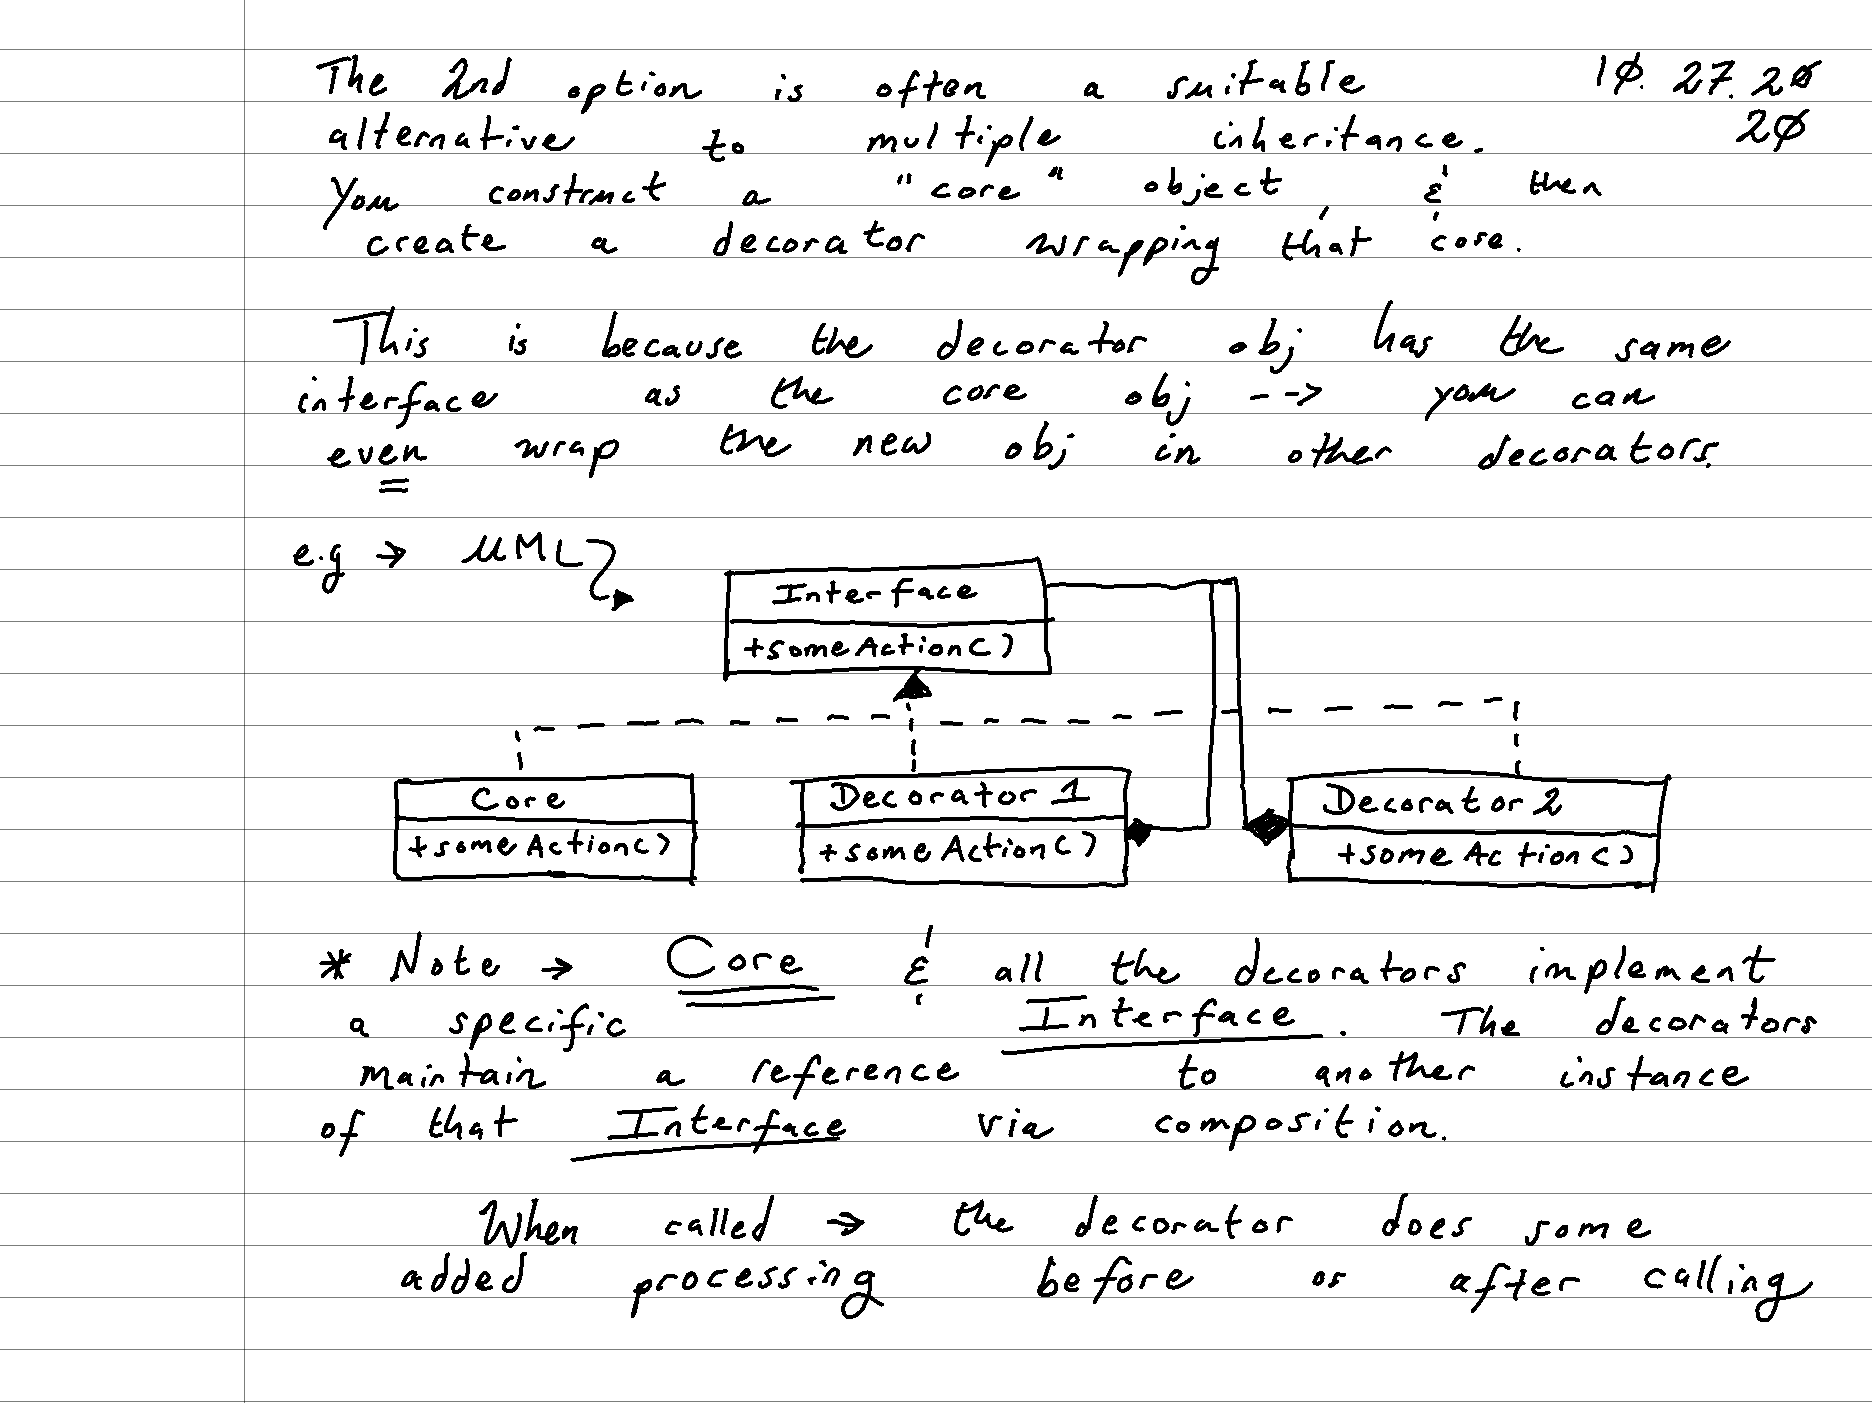 The 2nd option is often a suitable 10.27.20
alternative to multiple inheritance. 20
You construct a "core" object, & then
create a decorator wrapping that core.
This is because the decorator obj has the same
interface as the core obj --> you can
even wrap the new obj in other decorators.
e.g → UML
Interface
+someAction()
Core
+someAction()
Decorator 1
+someAction()
Decorator 2
+someAction()
* Note → Core & all the decorators implement
a specific Interface. The decorators
maintain a reference to another instance
of that Interface via composition.
When called → the decorator does some
added processing before or after calling